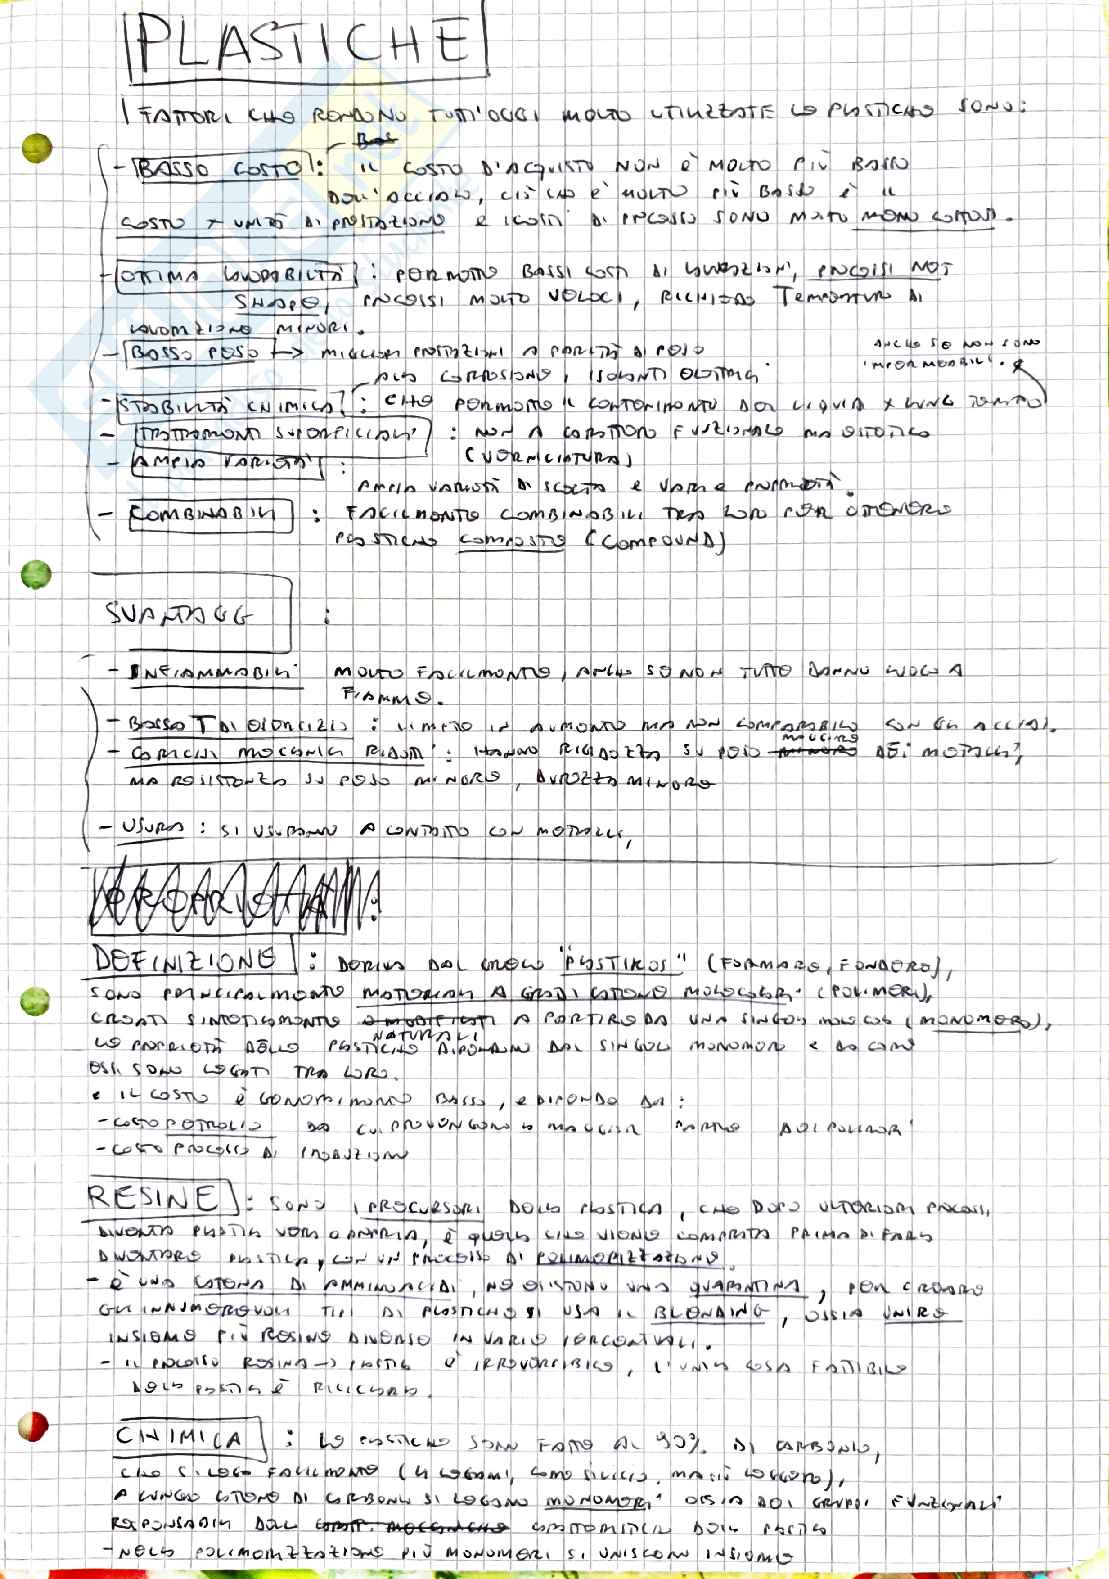 PLASTICHE
I FATTORI CHE RENDONO TUTT'OGGI MOLTO UTILIZZATE LE PLASTICHE SONO:
- BASSO COSTO : IL COSTO D'ACQUISTO NON È MOLTO PIÙ BASSO
DELL'ACCIAIO, CIÒ CHE È MOLTO PIÙ BASSO È IL
COSTO X UNITÀ DI PRESTAZIONE E I COSTI DI PROCESSO SONO MOLTO MENO COSTOSI.
- OTTIMA LAVORABILITÀ : PERMETTE BASSI COSTI DI LAVORAZIONI, PROCESSI NET
SHAPE, PROCESSI MOLTO VELOCI, RICHIEDE TEMPERATURE DI
LAVORAZIONE MINORI.
- BASSO PESO -> MIGLIORI PRESTAZIONI A PARITÀ DI PESO
ANCHE SE NON SONO
IMPERMEABILI.
ALLA CORROSIONE, ISOLANTI ELETTRICI
- STABILITÀ CHIMICA : CHE PERMETTE IL CONTENIMENTO DEI LIQUIDI X LUNGO TEMPO
- TRATTAMENTI SUPERFICIALI : NON A CARATTERE FUNZIONALE MA ESTETICO
(VERNICIATURA)
- AMPIA VARIETÀ :
AMPIA VARIETÀ DI SCELTA E VARIE PROPRIETÀ.
- COMBINABILI : FACILMENTE COMBINABILI TRA LORO PER OTTENERE
PLASTICHE COMPOSTE (COMPOUND)
SVANTAGG :
- INFIAMMABILI MOLTO FACILMENTE, ANCHE SE NON TUTTE DANNO LUOGO A
FIAMME.
- BASSA T DI ESERCIZIO : LIMITE IN AUMENTO MA NON COMPARABILE CON GLI ACCIAI.
- CARICHI MECCANICI RIDOTTI : HANNO RIGIDEZZA SU PESO MAGGIORE DEI METALLI,
MA RESISTENZA SU PESO MINORE, DUREZZA MINORE
- USURA : SI USURANO A CONTATTO CON METALLI,
DEFINIZIONE : DERIVA DAL GRECO "PLASTIKOS" (FORMARE, FONDERE),
SONO PRINCIPALMENTE MATERIALI A GRANDI CATENE MOLECOLARI (POLIMERI),
CREATI SINTETICAMENTE O MODIFICATI NATURALI A PARTIRE DA UNA SINGOLA MOLECOLA (MONOMERO),
LE PROPRIETÀ DELLE PLASTICHE DIPENDONO DAL SINGOLO MONOMERO E DA COME
ESSI SONO LEGATI TRA LORO.
• IL COSTO È GENERALMENTE BASSO, E DIPENDE DA:
- COSTO PETROLIO DA CUI PROVENGONO LA MAGGIOR PARTE DEI POLIMERI
- COSTO PROCESSO DI PRODUZIONE
RESINE : SONO I PRECURSORI DELLA PLASTICA, CHE DOPO ULTERIORI PROCESSI,
DIVENTA PLASTICA VERA E PROPRIA, È QUELLA CHE VIENE COMPRATA PRIMA DI FARLA
DIVENTARE PLASTICA, CON UN PROCESSO DI POLIMERIZZAZIONE.
- È UNA CATENA DI AMMINOACIDI, NE ESISTONO UNA QUARANTINA, PER CREARE
GLI INNUMEREVOLI TIPI DI PLASTICHE SI USA IL BLENDING, OSSIA UNIRE
INSIEME PIÙ RESINE DIVERSE IN VARIE PERCENTUALI.
- IL PROCESSO RESINA -> PLASTICA È IRREVERSIBILE, L'UNICA COSA FATTIBILE
DELLA PLASTICA È RICICLARLA.
CHIMICA : LE PLASTICHE SONO FATTE AL 90% DI CARBONIO,
CHE SI LEGA FACILMENTE (4 LEGAMI, COME SILICIO, MA PIÙ LEGGERO),
A LUNGHE CATENE DI CARBONIO SI LEGANO MONOMERI OSSIA DEI GRUPPI FUNZIONALI
RESPONSABILI DELLE CARATTERISTICHE DELLA PLASTICA
- NELLA POLIMERIZZAZIONE PIÙ MONOMERI SI UNISCONO INSIEME